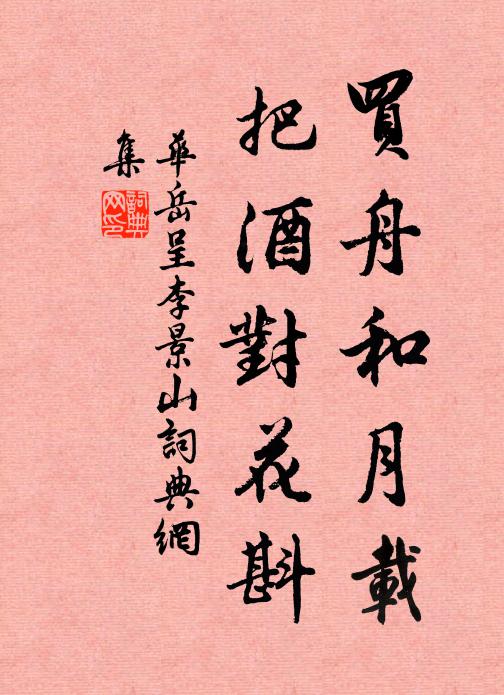 買舟和月載
把酒對花斟
華岳呈李景山詞典網
集
詞典
网印